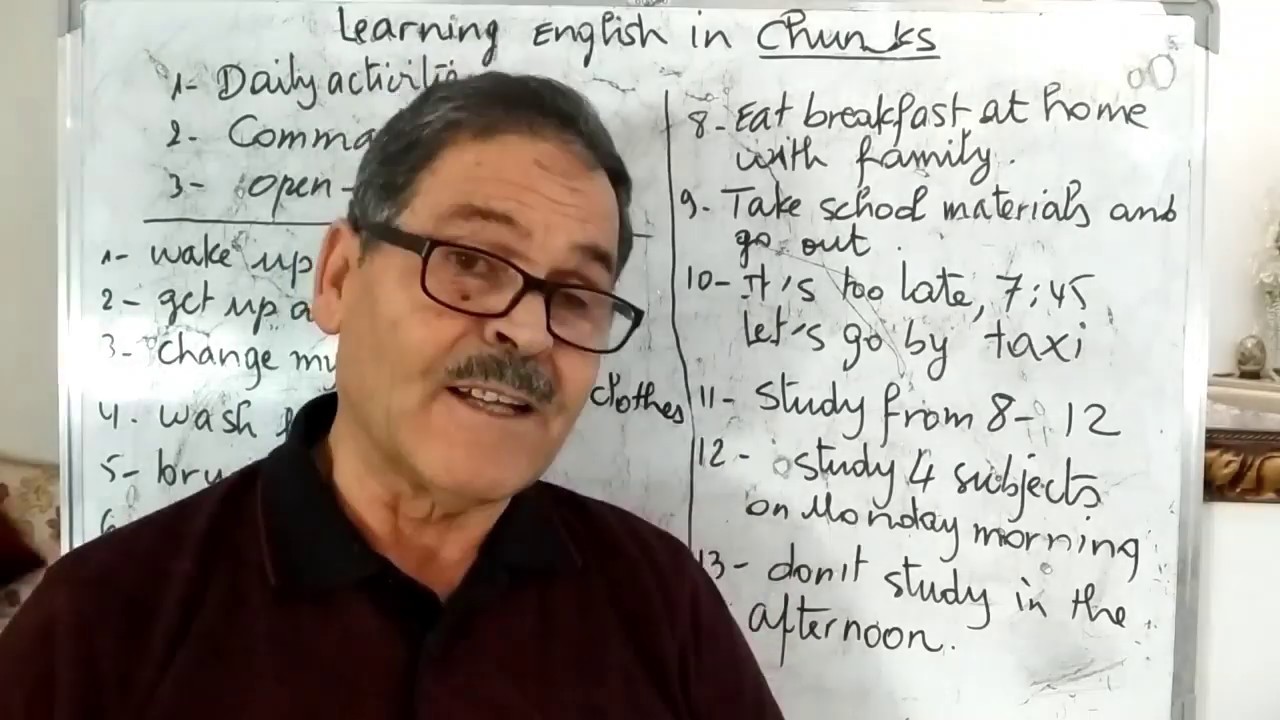 Learning English in Chunks
1- Daily activitie
2- Comma
3- open-
1- wake up
2- get up a
3- change my
clothes
4. wash
5- bru
6
8- Eat breakfast at home
with family.
9- Take school materials and
go out.
10- It's too late, 7:45
let's go by taxi
11- study from 8- 12
12- study 4 subjects
on Monday morning
13- don't study in the
afternoon.